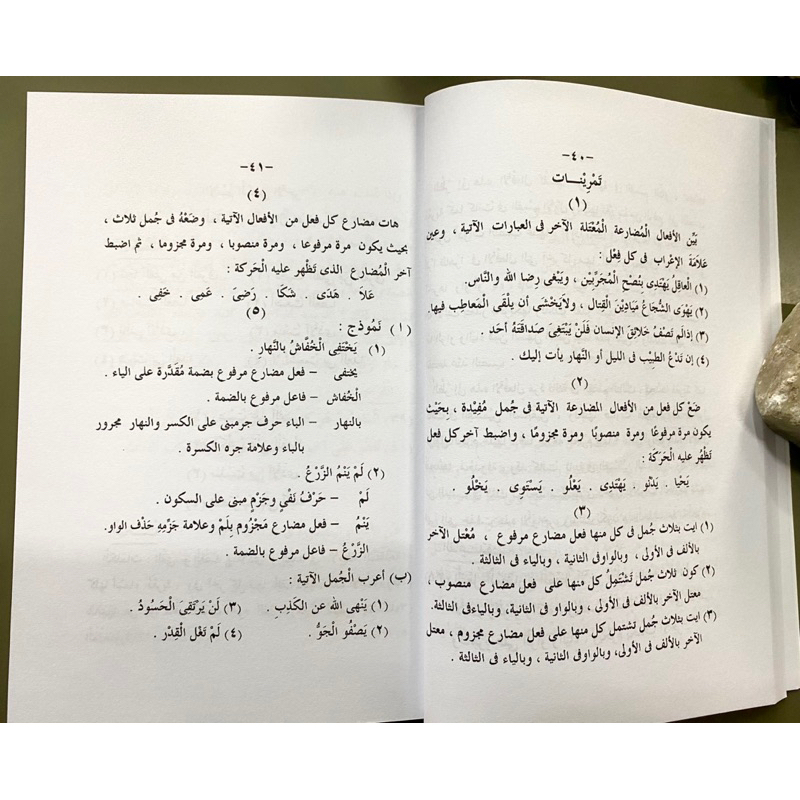 -٤٠-
تَمْرِيْنَــات
(١)
بَيِّن الأفعال الْمُضارعة الْمُعْتَلة الآخر فى العبارات الآتية ، وعين
عَلاَمَة الإعْراب فى كل فِعْل :
(١) الْعاقِلُ يَهْتَدِى بِنُصْحِ الْمُجَرِّبِيْن ، ويَبْغى رِضا الله والنَّاس.
(٢) يَهْوَى الشُّجَاعُ مَيَادِيْنَ الْقِتال ، ولاَيَخْشَى أن يلْقَى الْمَعاطِب فيها.
(٣) إذالَم تَصْفُ خَلائِقُ الإنسان فَلَنْ يَبْتَغِىَ صَدَاقَتَهُ أحَد .
(٤) إن تَدْعُ الطَبِيْبَ فى الليل أو النَّهار يأت إليك .
(٢)
ضَعْ كل فعل من الأفعال المضارعة الآتية فى جُمل مُفِيْدة ، بحَيْث
يكون مرة مرفوعًا ومرة منصوبًا ومرة مجزومًا ، واضبط آخركل فعل
تَظْهُر عليه الْحَرَكَة :
يَحْيا . يَدْنُو . يَهْتَدِى . يَعْلُو . يَسْتَوِى . يَخْلُو .
(٣)
(١) ايت بثلاث جُمل فى كل منها فعل مضارع مرفوع ، مُعْتل الآخر
بالألف فى الأولى ، وبالواوفى الثانية ، وبالياء فى الثالثة .
(٢) كون ثلاث جُمل تَشْتَمِلُ كل منها على فعل مضارع منصوب ،
معتل الآخر بالألف فى الأولى ، وبالواو فى الثانية، وبالياءفى الثالثة.
(٣) ايت بثلاث جُمل تشتمل كل منها على فعل مضارع مجزوم ، معتل
الآخر بالألف فى الأولى، وبالواوفى الثانية ، وبالياء فى الثالثة .
-٤١-
(٤)
هات مضارع كل فعل من الأفعال الآتية ، وضَعْهُ فى جُمل ثلاث ،
بحيث يكون مرة مرفوعا ، ومرة منصوبا ، ومرة مجزوما ، ثم اضبط
آخر الْمُضارع الذى تَظْهر عليه الْحَركة :
عَلاَ . هَدَى . شَكَا . رَضِىَ . عَمِى . خَفِى .
(٥)
(١) نَمُوذج :
(١) يَخْتَفى الْخُفَّاش بالنَّهارِ .
يختفى – فعل مضارع مرفوع بضمة مُقَدَّرة على الياء .
الْخُفاش – فاعل مرفوع بالضمة .
بالنهار – الباء حرف جرمبنى على الكسر والنهار مجرور
بالباء وعلامة جره الكسرة .
(٢) لَمْ يَنْمُ الزَّرْعُ .
لَمْ – حَرْفُ نَفْيٍ وجَزْمٍ مبنى على السكون .
يَنْمُ – فعل مضارع مَجْزُوم بِلَمْ وعلامة جَزْمِهِ حَذْف الواو.
الزَّرْعُ – فاعل مرفوع بالضمة .
(ب) أعرب الْجُمل الآتية :
(١) يَنْهى الله عن الكَذِبِ . (٣) لَنْ يَرْتَقِىَ الْحَسُودُ .
(٢) يَصْفُو الْجَوُّ . (٤) لَمْ تَغْل الْقِدْر .